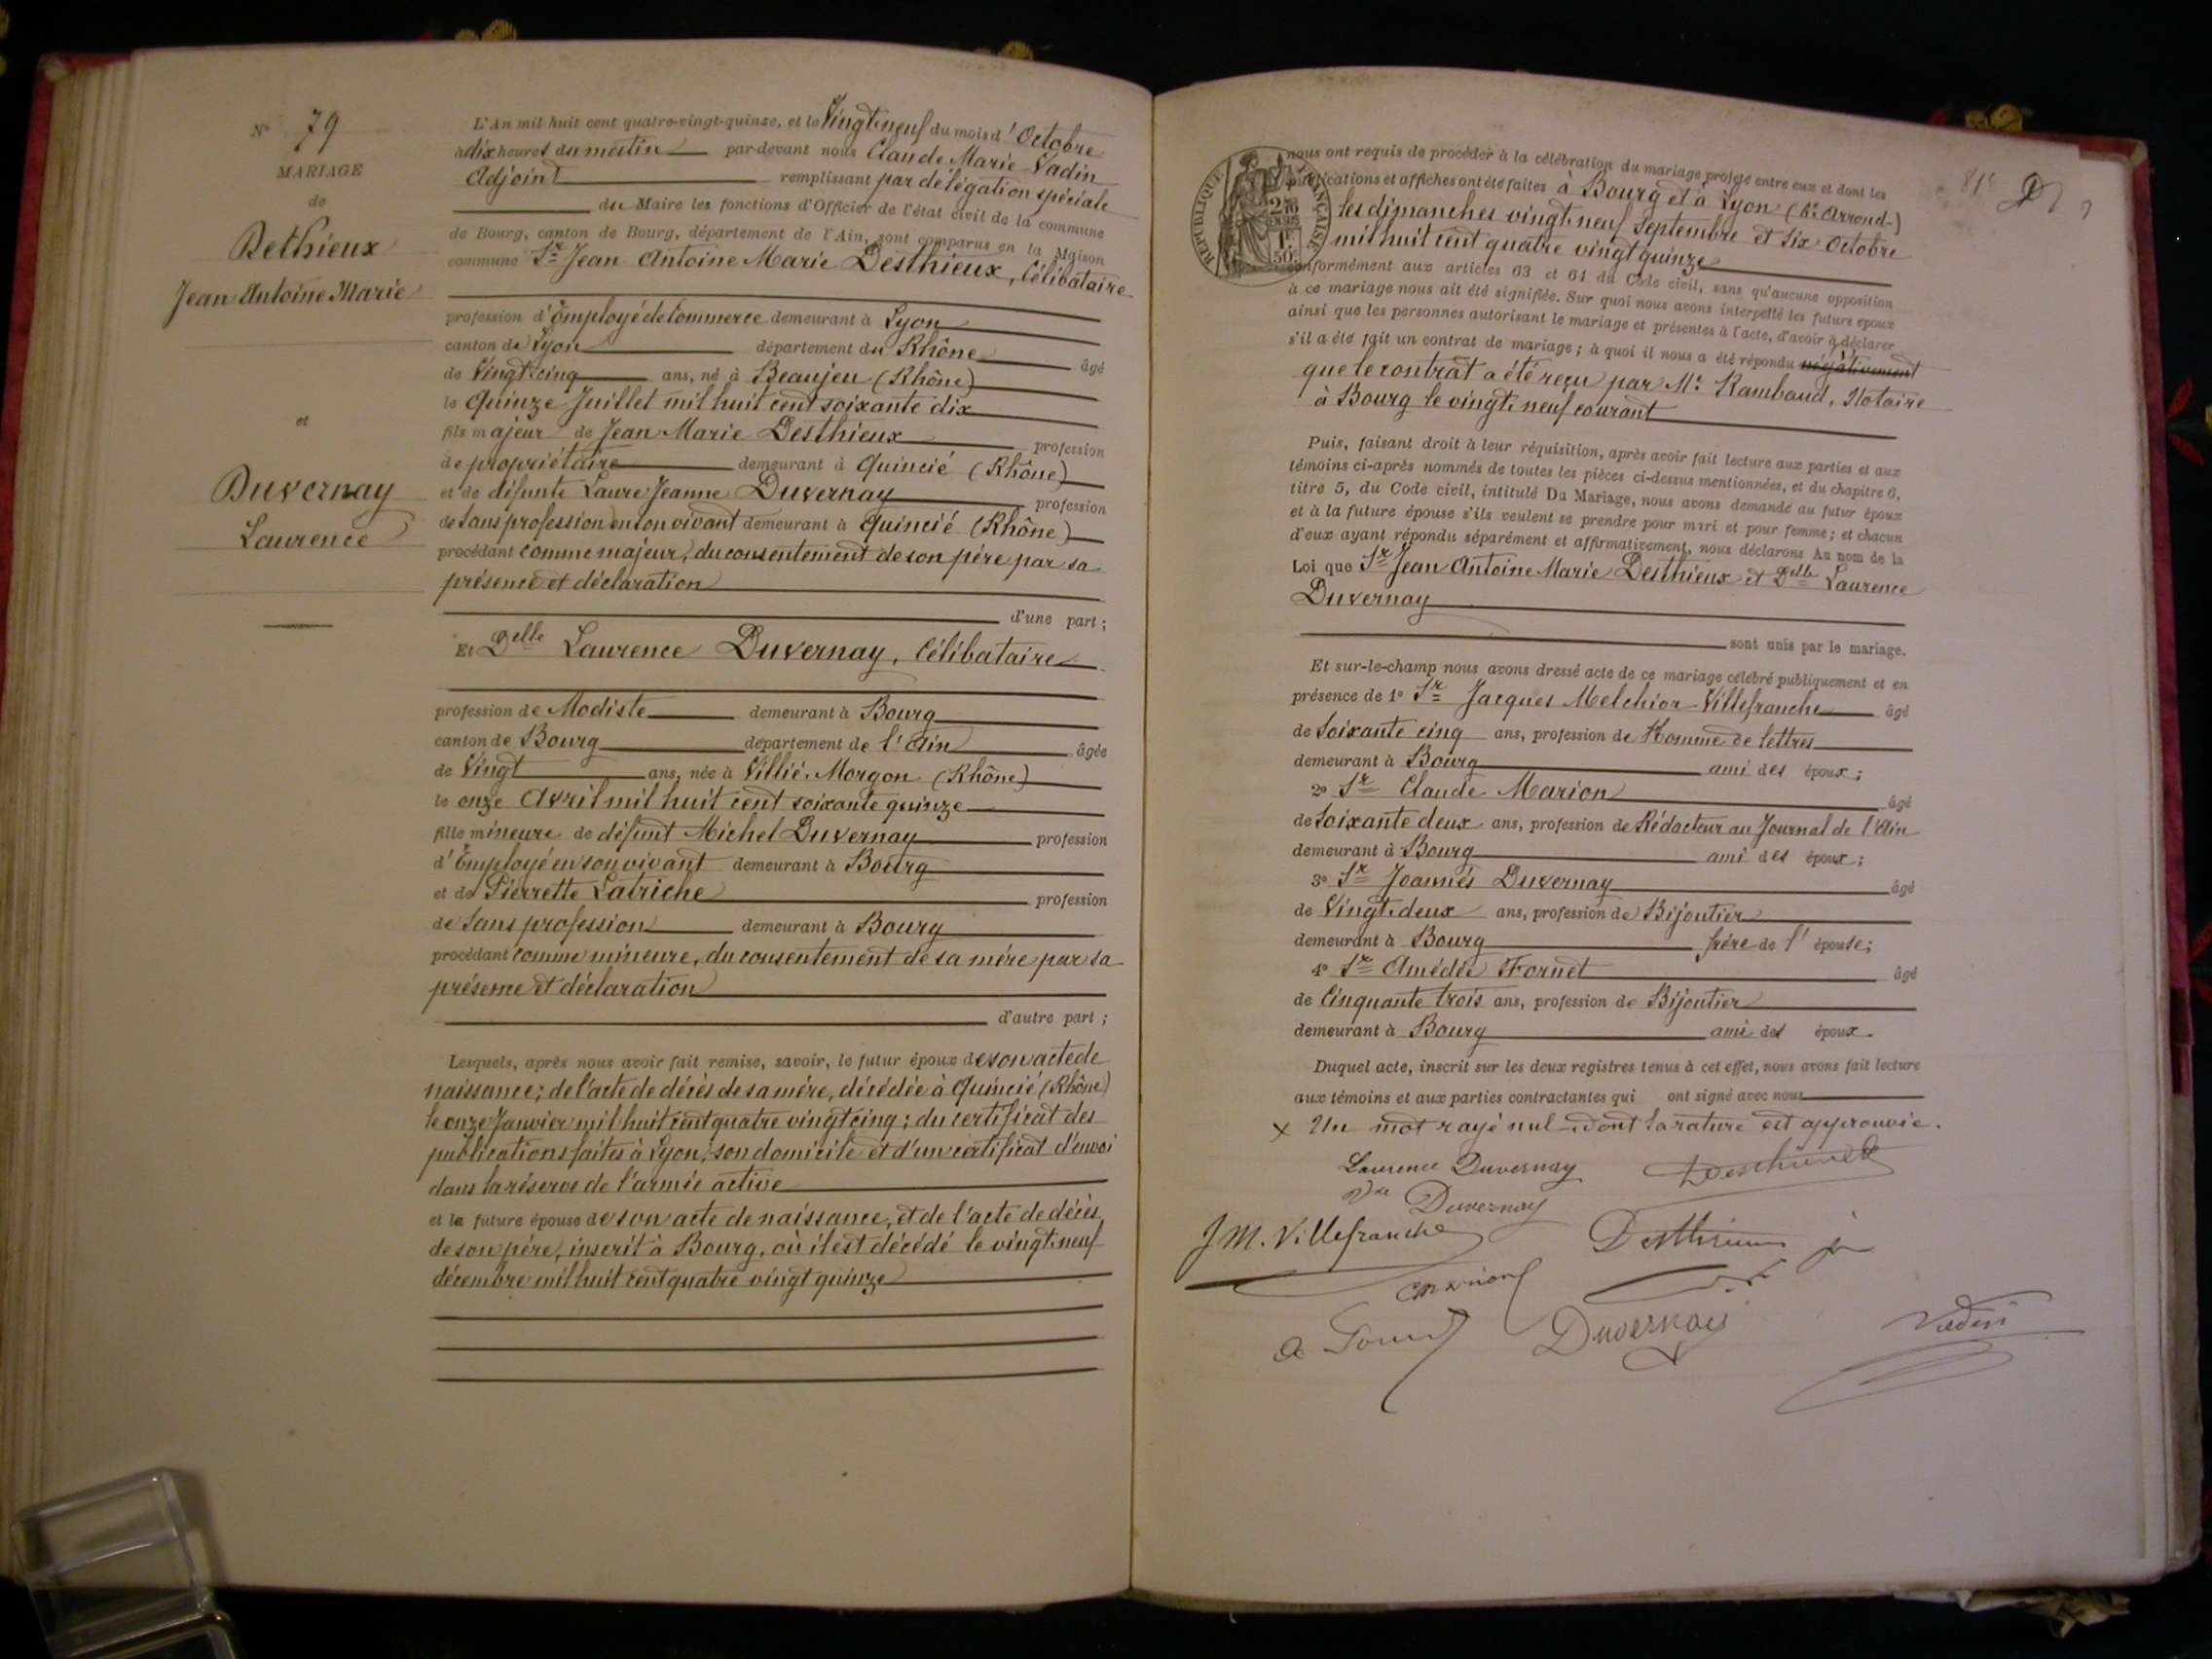 N° 79
MARIAGE
de
Dethieux
Jean Antoine Marie
et
Duvernay
Laurence
L'An mil huit cent quatre-vingt-quinze, et le Vingt-neuf du mois d'Octobre
à dix heures du matin par-devant nous Claude Marie Vadin
Adjoint remplissant par délégation spéciale
du Maire les fonctions d'Officier de l'état civil de la commune
de Bourg, canton de Bourg, département de l'Ain, sont comparus en la Maison
commune Sr Jean Antoine Marie Desthieux, Célibataire
profession d'Employé de Commerce demeurant à Lyon
canton de Lyon département du Rhône âgé
de Vingt cinq ans, né à Beaujeu (Rhône)
le Quinze Juillet mil huit cent soixante dix
fils majeur de Jean Marie Desthieux profession
de propriétaire demeurant à Quincié (Rhône)
et de défunte Laure Jeanne Duvernay profession
de Sans profession en son vivant demeurant à Quincié (Rhône)
procédant comme majeur, du consentement de son père par sa
présence et déclaration
d'une part;
Et Delle Laurence Duvernay, Célibataire
profession de Modiste demeurant à Bourg
canton de Bourg département de l'Ain âgée
de Vingt ans, née à Villié-Morgon (Rhône)
le onze Avril mil huit cent soixante quinze
fille mineure de défunt Michel Duvernay profession
d'Employé en son vivant demeurant à Bourg
et de Pierrette Latriche profession
de Sans profession demeurant à Bourg
procédant comme mineure, du consentement de sa mère par sa
présence et déclaration
d'autre part;
Lesquels, après nous avoir fait remise, savoir, le futur époux de son acte de
naissance; de l'acte de décès de sa mère, décédée à Quincié (Rhône)
le onze Janvier mil huit cent quatre vingt cinq; du certificat des
publications faites à Lyon, son domicile et d'un certificat d'envoi
dans la réserve de l'armée active
et la future épouse de son acte de naissance, et de l'acte de décès
de son père, inscrit à Bourg, où il est décédé le vingt-neuf
décembre mil huit cent quatre vingt quinze
81e
RÉPUBLIQUE FRANÇAISE
1F
50c
nous ont requis de procéder à la célébration du mariage projeté entre eux et dont les
publications et affiches ont été faites à Bourg et à Lyon ( Arrond.)
les dimanches vingt-neuf Septembre et Six Octobre
mil huit cent quatre vingt quinze
conformément aux articles 63 et 64 du Code civil, sans qu'aucune opposition
à ce mariage nous ait été signifiée. Sur quoi nous avons interpellé les futurs époux
ainsi que les personnes autorisant le mariage et présentes à l'acte, d'avoir à déclarer
s'il a été fait un contrat de mariage; à quoi il nous a été répondu négativement
que le contrat a été reçu par Me Rambaud, Notaire
à Bourg le vingt-neuf courant
Puis, faisant droit à leur réquisition, après avoir fait lecture aux parties et aux
témoins ci-après nommés de toutes les pièces ci-dessus mentionnées, et du chapitre 6,
titre 5, du Code civil, intitulé Du Mariage, nous avons demandé au futur époux
et à la future épouse s'ils veulent se prendre pour mari et pour femme; et chacun
d'eux ayant répondu séparément et affirmativement, nous déclarons Au nom de la
Loi que Sr Jean Antoine Marie Desthieux et Delle Laurence
Duvernay
sont unis par le mariage.
Et sur-le-champ nous avons dressé acte de ce mariage célébré publiquement et en
présence de 1° Sr Jacques Melchior Villefranche âgé
de Soixante cinq ans, profession de Homme de lettres
demeurant à Bourg ami des époux;
2° Sr Claude Marion âgé
de Soixante deux ans, profession de Rédacteur au Journal de l'Ain
demeurant à Bourg ami des époux;
3° Sr Joannès Duvernay âgé
de Vingt-deux ans, profession de Bijoutier
demeurant à Bourg frère de l'épouse;
4° Sr Amédée Fornet âgé
de Cinquante trois ans, profession de Bijoutier
demeurant à Bourg ami des époux.
Duquel acte, inscrit sur les deux registres tenus à cet effet, nous avons fait lecture
aux témoins et aux parties contractantes qui ont signé avec nous
x Un mot rayé nul dont la rature est approuvée.
Laurence Duvernay Desthieux
Vve Duvernay
J M. Villefranche Desthieux
C Marion
Duvernay
Vadin